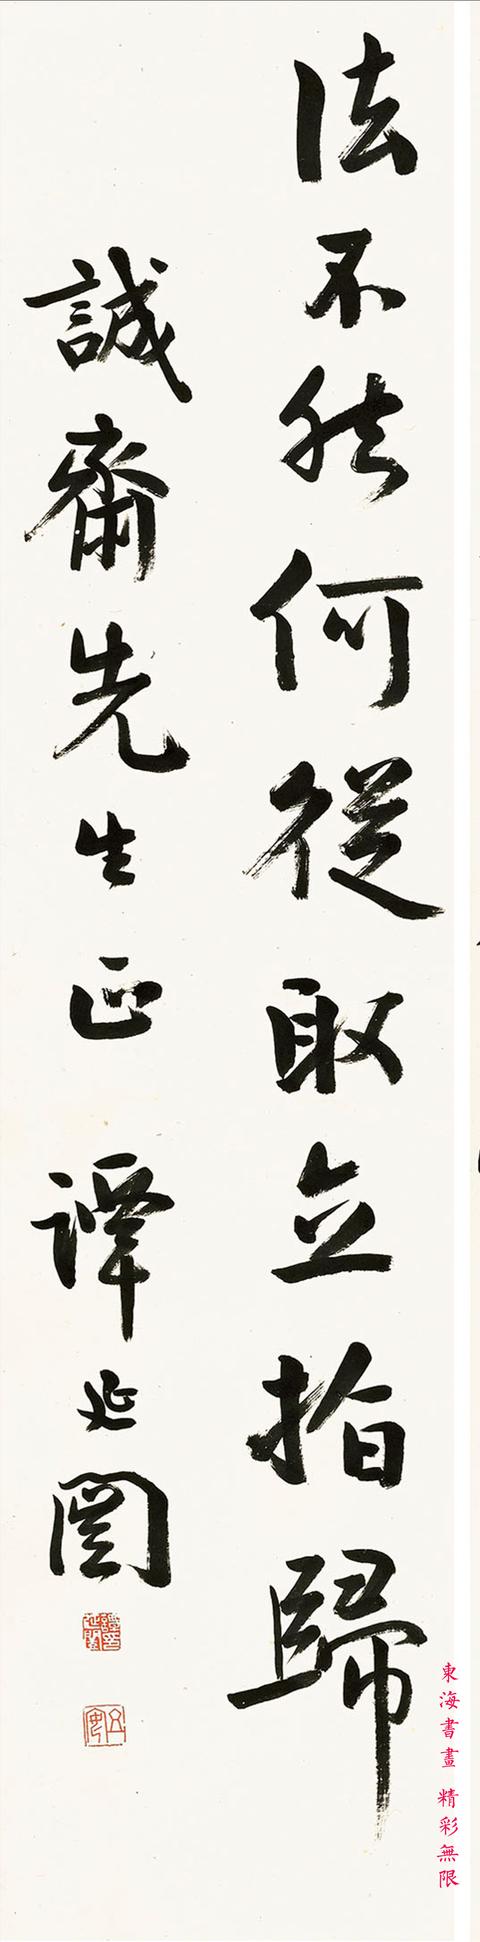 法不然何從取立指歸
誠齋先生正 譚延闓
東海書畫 精彩無限